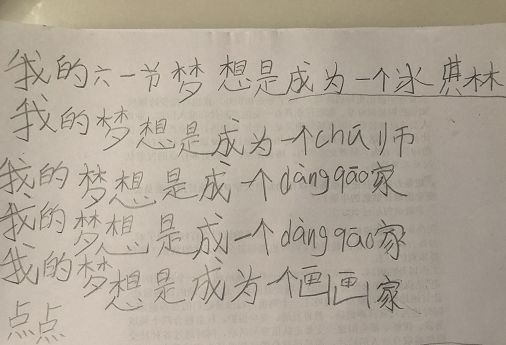 我的六一节梦想是成为一个冰淇林
我的梦想是成为一个chú师
我的梦想是成一个dàngāo家
我的梦想是成一个dàngāo家
我的梦想是成为一个画画家
点点